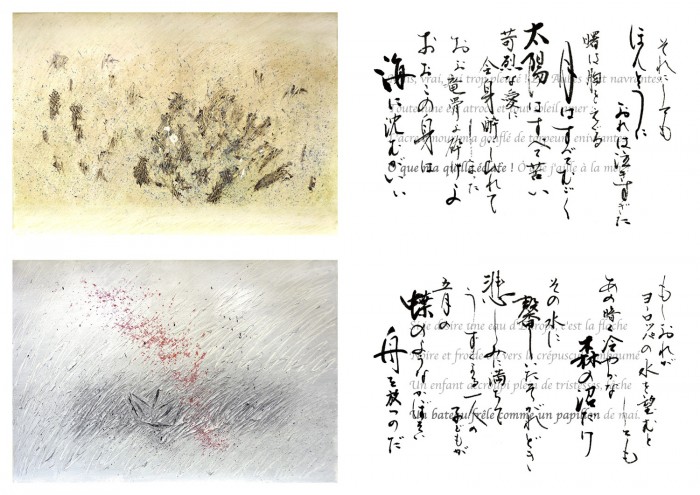 それにしても
ほんとうに
おれは泣きすぎた
曙は胸をえぐる
月はすべてむごく
太陽はすべて苦い
苛烈な愛に
全身酔いしれて
しまった
おお竜骨よ砕けよ
おおこの身は
海に沈むがいい
Mais, vrai, j'ai trop pleuré ! Les Aubes sont navrantes.
Toute lune est atroce et tout soleil amer :
L'âcre amour m'a gonflé de torpeurs enivrantes.
Ô que ma quille éclate ! Ô que j'aille à la mer !
もしおれが
ヨーロッパの水を望むと
しても
あの時の冷やかな
森の沼だけ
その水に
馨しいたそがれどき
悲しみに満ちて
うずくまる一人の
子どもが
五月の
蝶のようなかぼそい
舟を放つのだ
Si je désire une eau d'Europe, c'est la flache
Noire et froide où vers le crépuscule embaumé
Un enfant accroupi plein de tristesses, lâche
Un bateau frêle comme un papillon de mai.